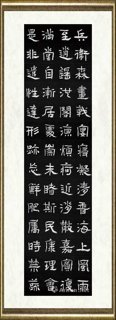 兵衛森畫戟宴寢凝清香海上風雨
至逍遙池閣涼煩痾近消散嘉賓復
滿堂自慚居處崇未睹斯民康理會
是非遣性達形跡忘鮮肥屬時禁蔬